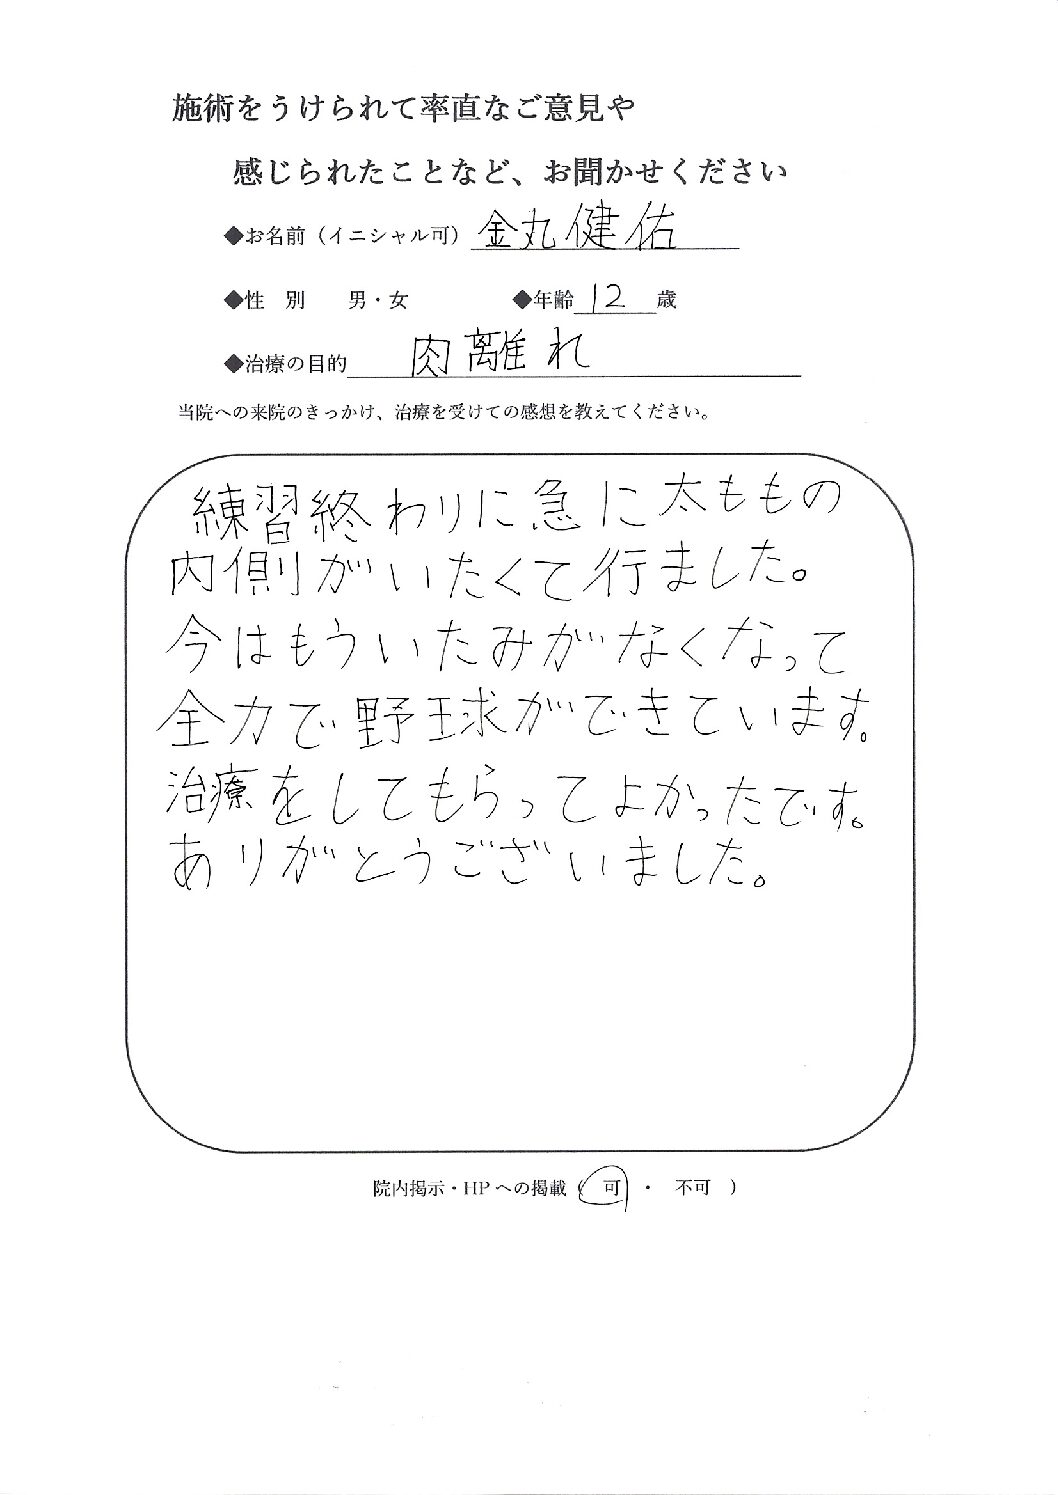 施術をうけられて率直なご意見や
感じられたことなど、お聞かせください
◆お名前（イニシャル可）金丸健佑
◆性　別　　男・女　　◆年齢 12 歳
◆治療の目的　肉離れ
当院への来院のきっかけ、治療を受けての感想を教えてください。
練習終わりに急に太ももの
内側がいたくて行ました。
今はもういたみがなくなって
全力で野球ができています。
治療をしてもらってよかったです。
ありがとうございました。
院内掲示・HPへの掲載（　可　・　不可　）